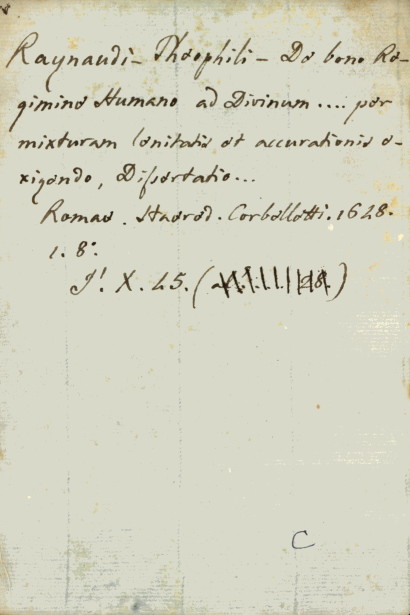 Raynaudi - Theophili - De bono Re-
gimine Humano ad Divinum .... per
mixturam lenitatis et accurationis e-
xigendo, Dissertatio...
Romae. Haered. Corbelletti. 1628.
1. 8°.
X. 45. (
C